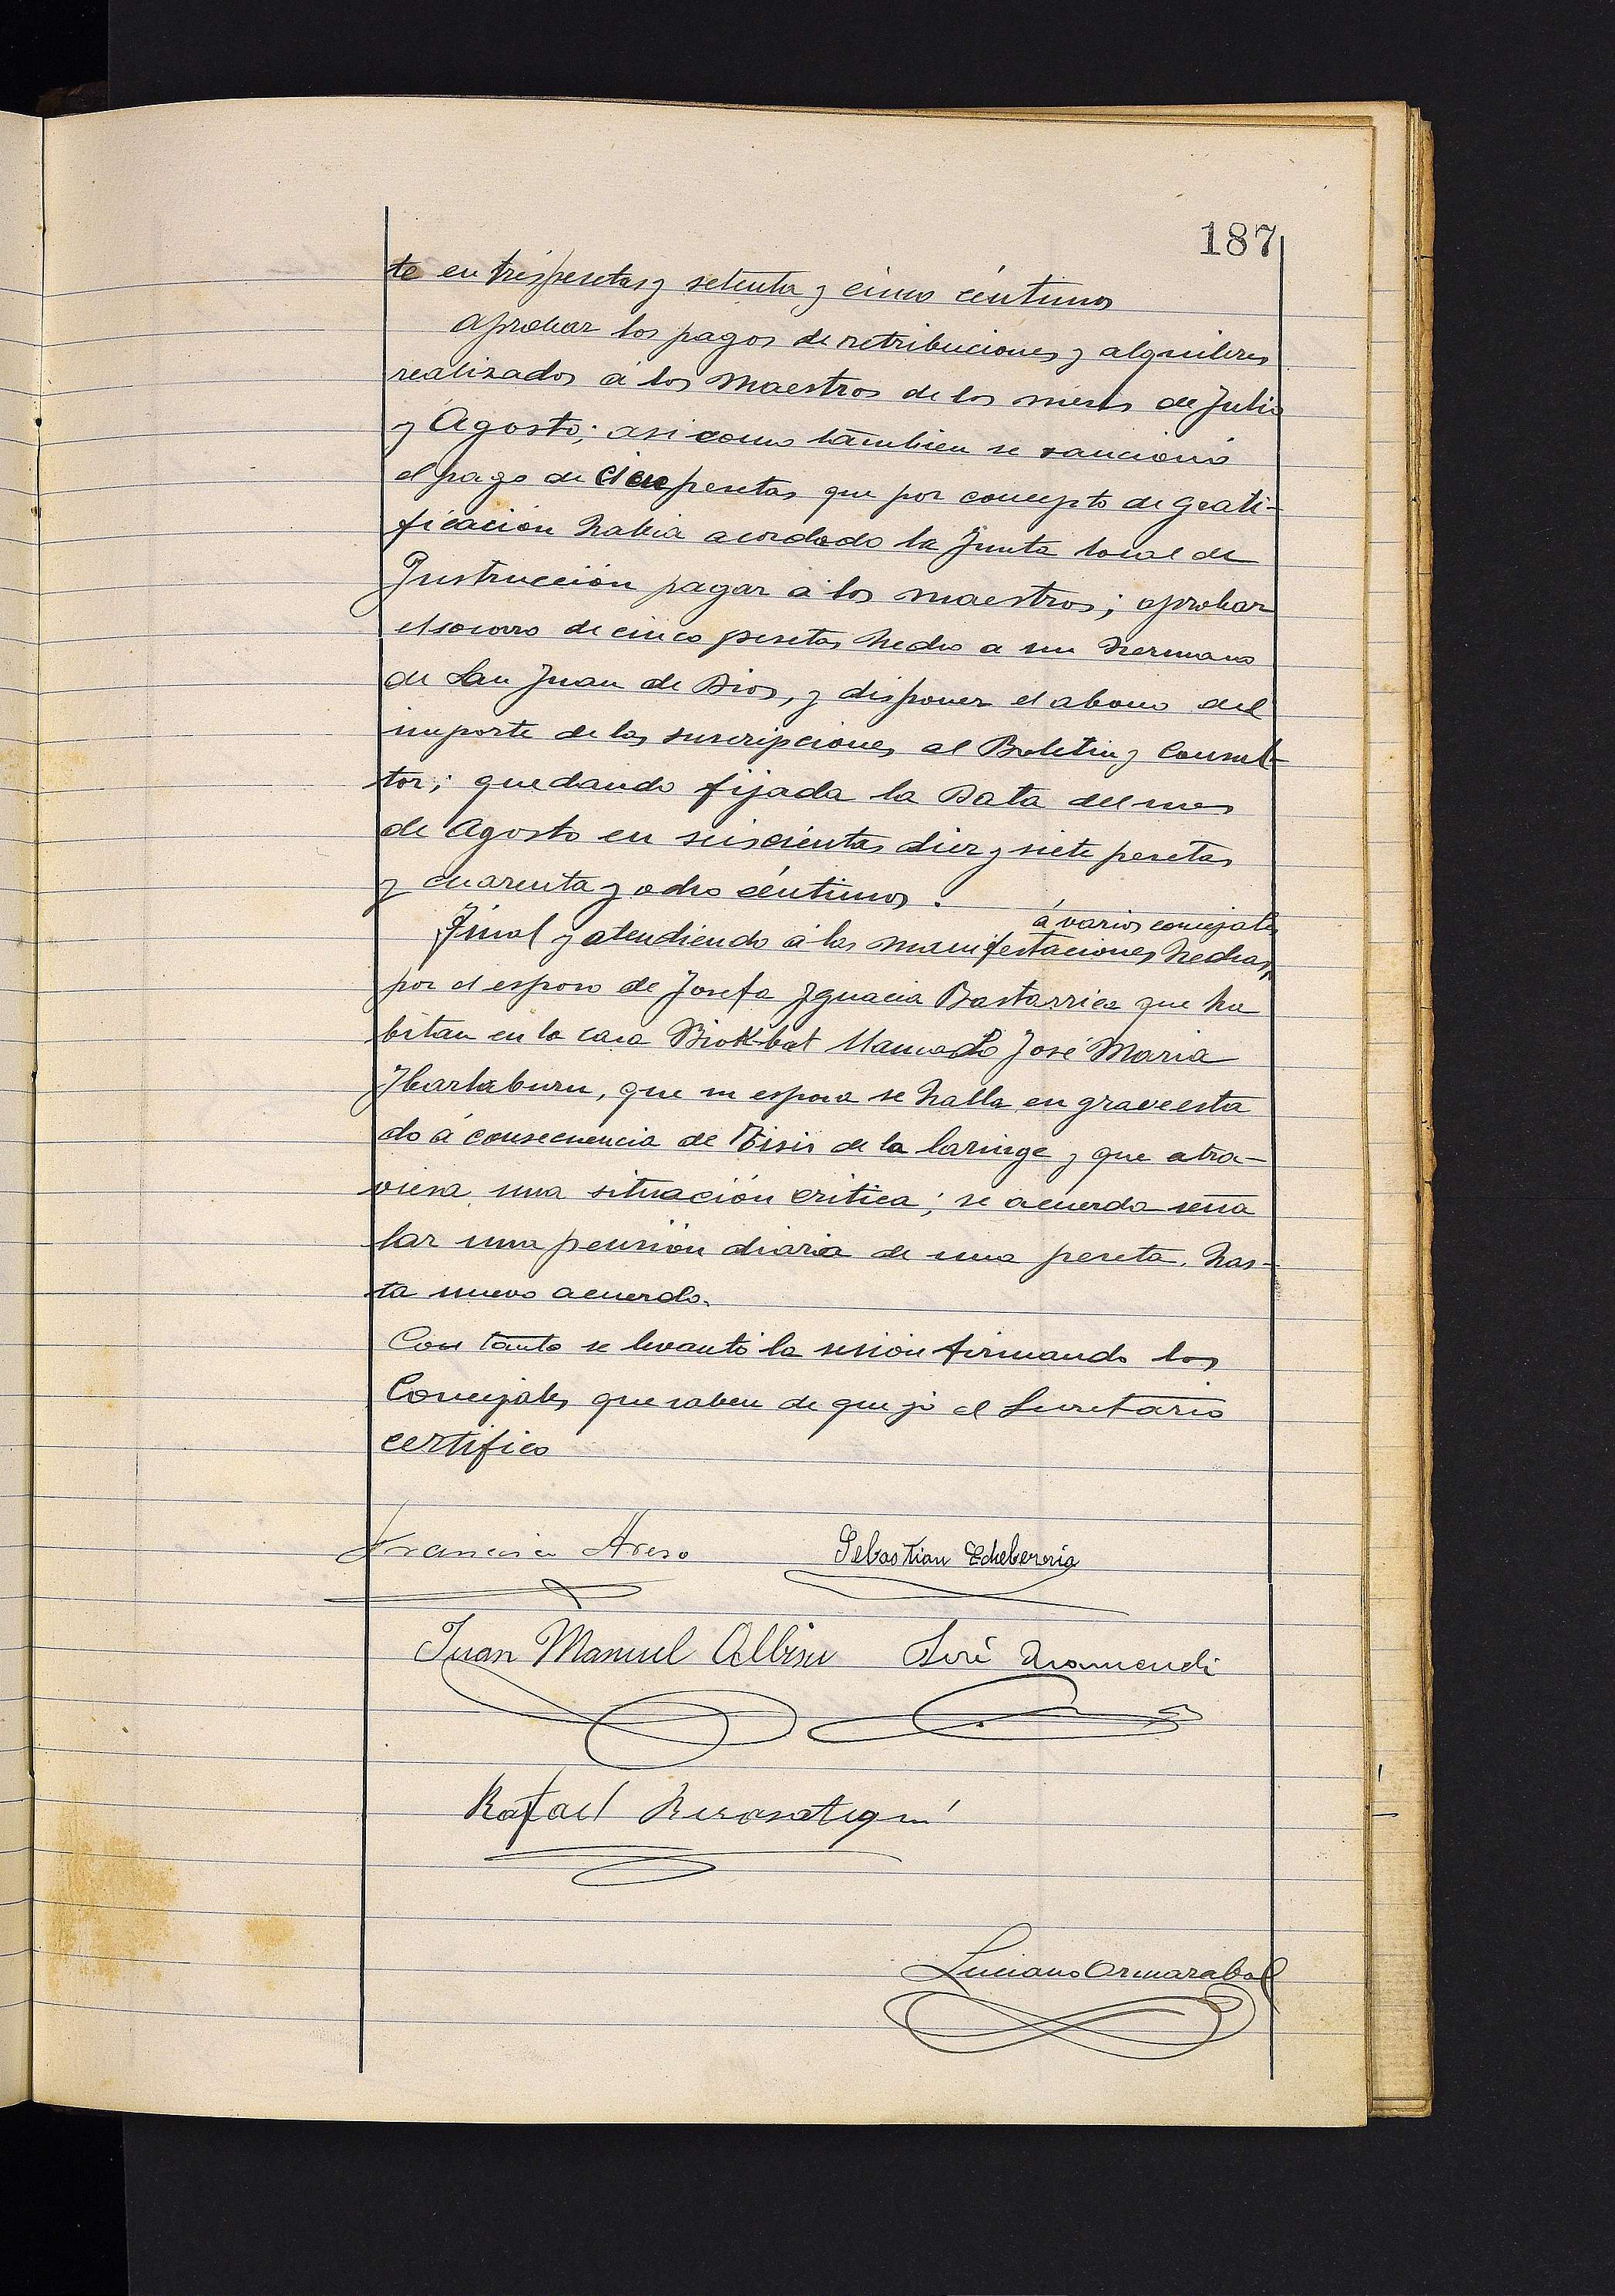 187
te en tres pesetas y setenta y cinco céntimos
Aprobar los pagos de retribuciones y alquileres
realizados á los Maestros de los meses de Julio
y Agosto; asi como tambien se sancionó
el pago de cien pesetas que por concepto de grati-
ficación habia acordado la Junta local de
Instrucción pagar á los maestros; aprobar
el socorro de cinco pesetas hecho a un hermano
de San Juan de Dios, y disponer el abono del
importe de las suscripciones al Boletin y Consul-
tor; quedando fijada la Data del mes
de Agosto en seiscientas diez y siete pesetas
y cuarenta y ocho céntimos.
á varios concejales
Final y atendiendo á las manifestaciones hechas
por el esposo de Josefa Ignacia Bastarrica que ha
bitan en la casa Biok-bat llamado José Maria
Ibarlaburu, que su esposa se halla en grave esta
do á consecuencia de Tisis de la laringe y que atra-
viesa una situación critica; se acuerda seña
lar una pensión diaria de una peseta, has-
ta nuevo acuerdo.
Con tanto se levantó la sesión firmando los
Concejales que saben de que yo el Secretario
certifico
Francisco Areso Sebastian Echeberria
Juan Manuel Albisu José Aramendi
Rafael Berasategui
Luciano Ormazabal